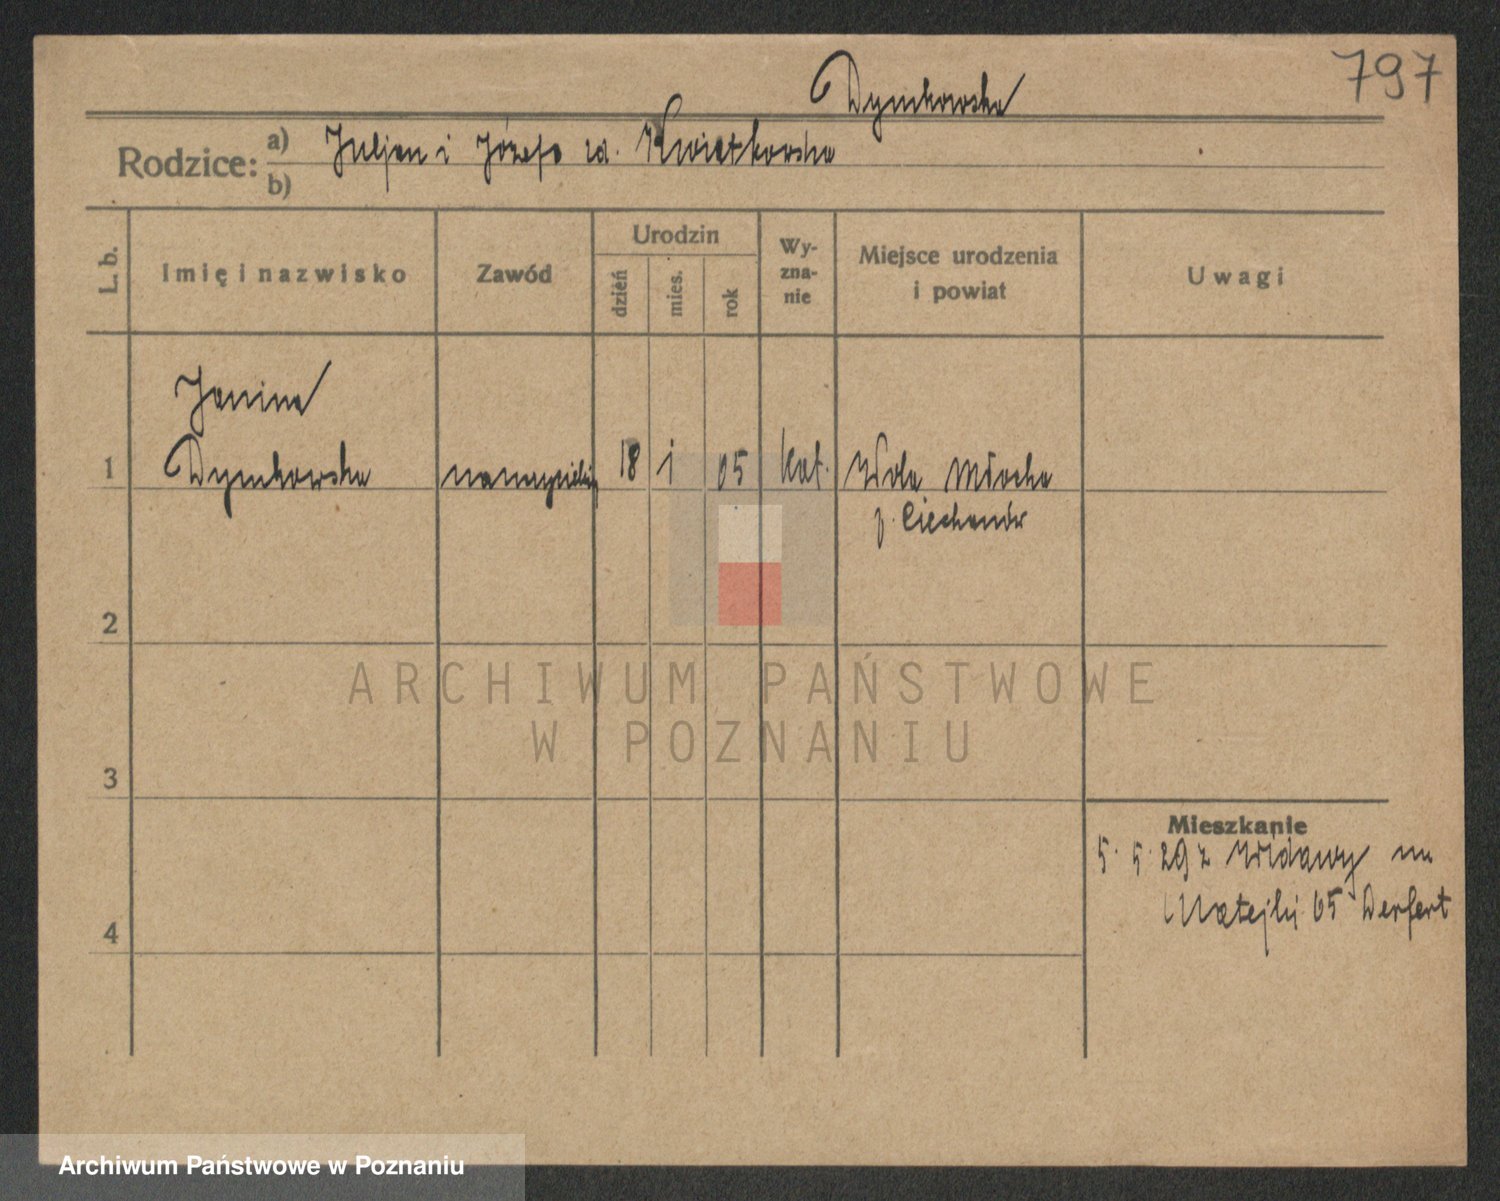 797
Dymkowska
Rodzice: a) Juljan i Józefa zd. Kwiatkowska
b)
L. b. Imię i nazwisko Zawód Urodzin dzień mies. rok Wyznanie Miejsce urodzenia i powiat Uwagi
Janina
1 Dymkowska 18 1 05 kat. Wola Młocka
p. Ciechanów
2
ARCHIWUM PAŃSTWOWE
W POZNANIU
3
Mieszkanie
5. 5. 29 z Widawy na
Matejki 65 Derfert
4
Archiwum Państwowe w Poznaniu